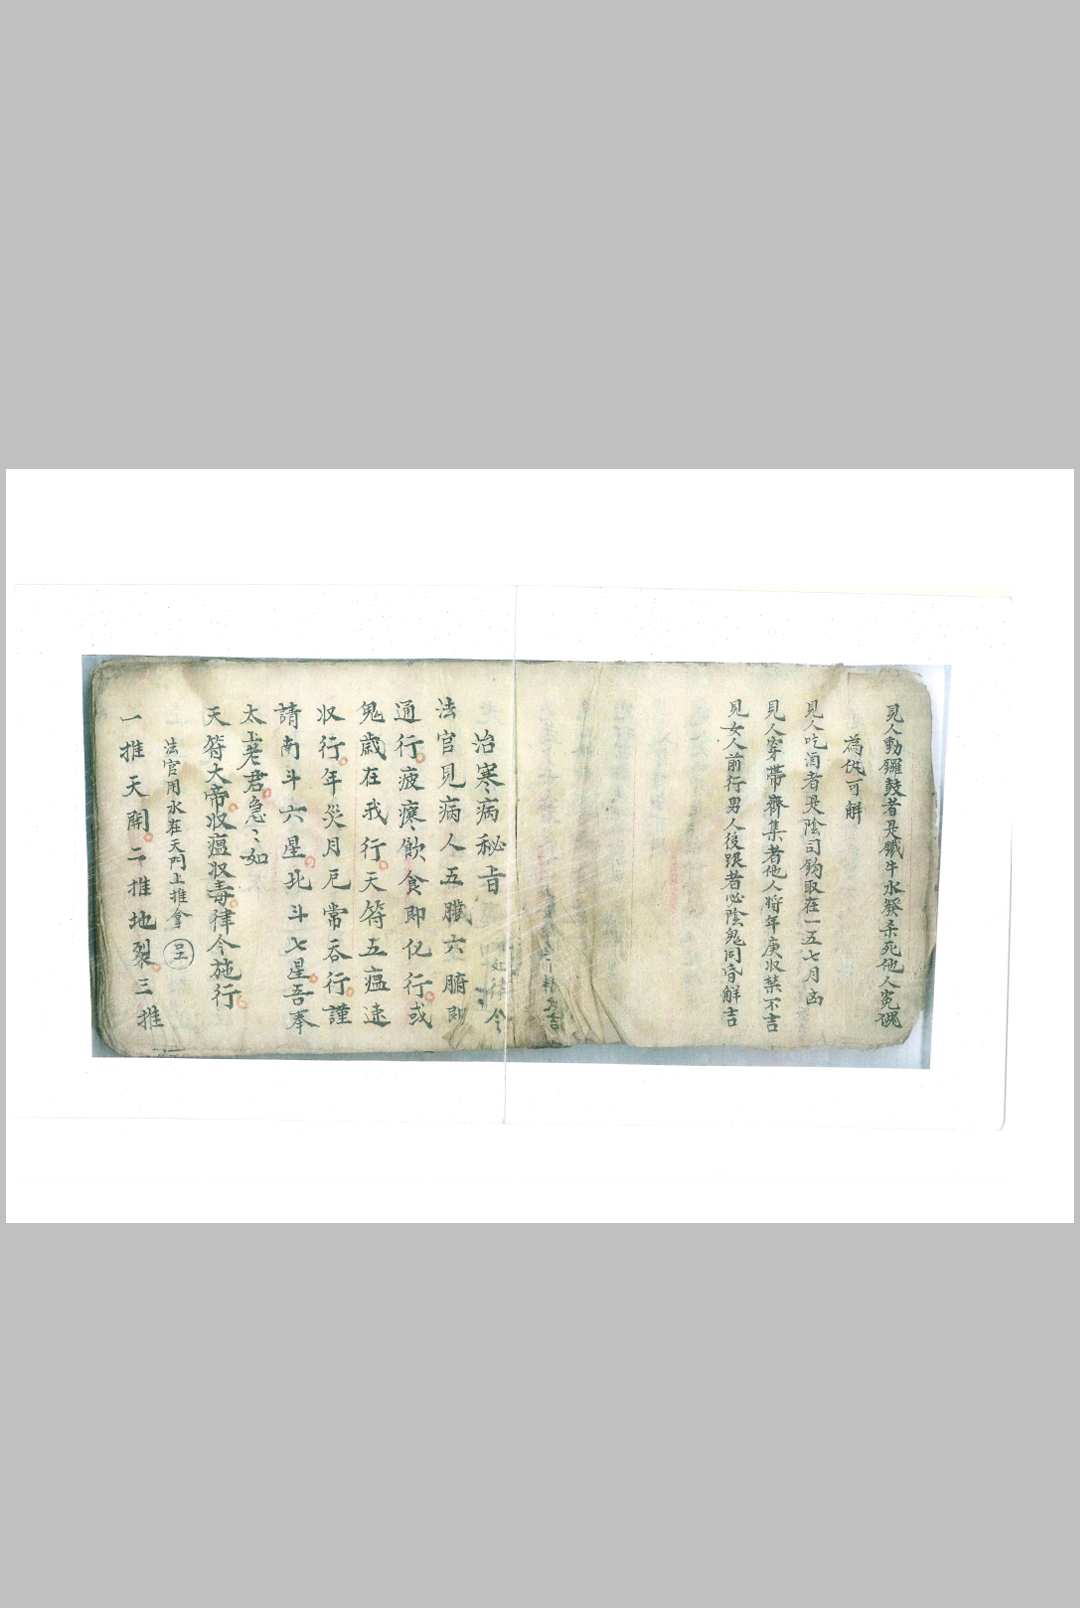 見人動鑼鼓者是鐵牛水癸杀死他人冤魂
為仇可解
見人吃酒者是陰司鈎取在一五七月凶
見人穿帶齊集者他人將年庚収禁不吉
見女人前行男人後跟者必陰鬼同宿解吉
治寒病秘旨
法官見病人五臟六腑即
通行疲瘝飲食即化行或
鬼歲在我行天符五瘟速
収行年災月厄常吞行謹
請南斗六星北斗七星吾奉
太上老君急〻如
律令
天符大帝収瘟収毒律令施行
法官用水在天門上推拿
一推天開二推地裂三推